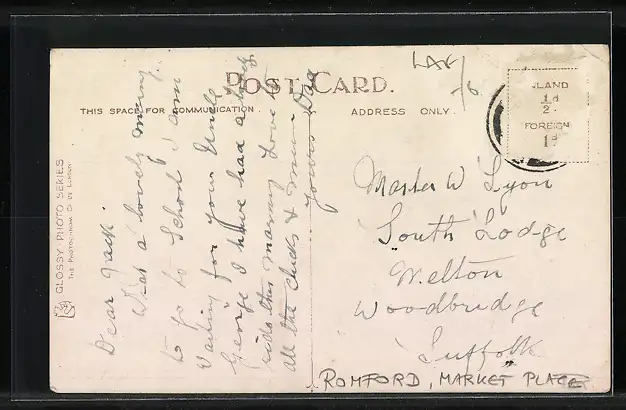 POST CARD.
THIS SPACE FOR COMMUNICATION
ADDRESS ONLY.
INLAND
½d
FOREIGN
1d
GLOSSY PHOTO SERIES
Dear Jack.
What a lovely morning
to go to School I am
waiting for your Uncle
George I have had a long
ride this morning Love to
all the Chicks & Mum
yours Dad
Master W Lyon
South Lodge
Melton
Woodbridge
Suffolk
ROMFORD, MARKET PLACE